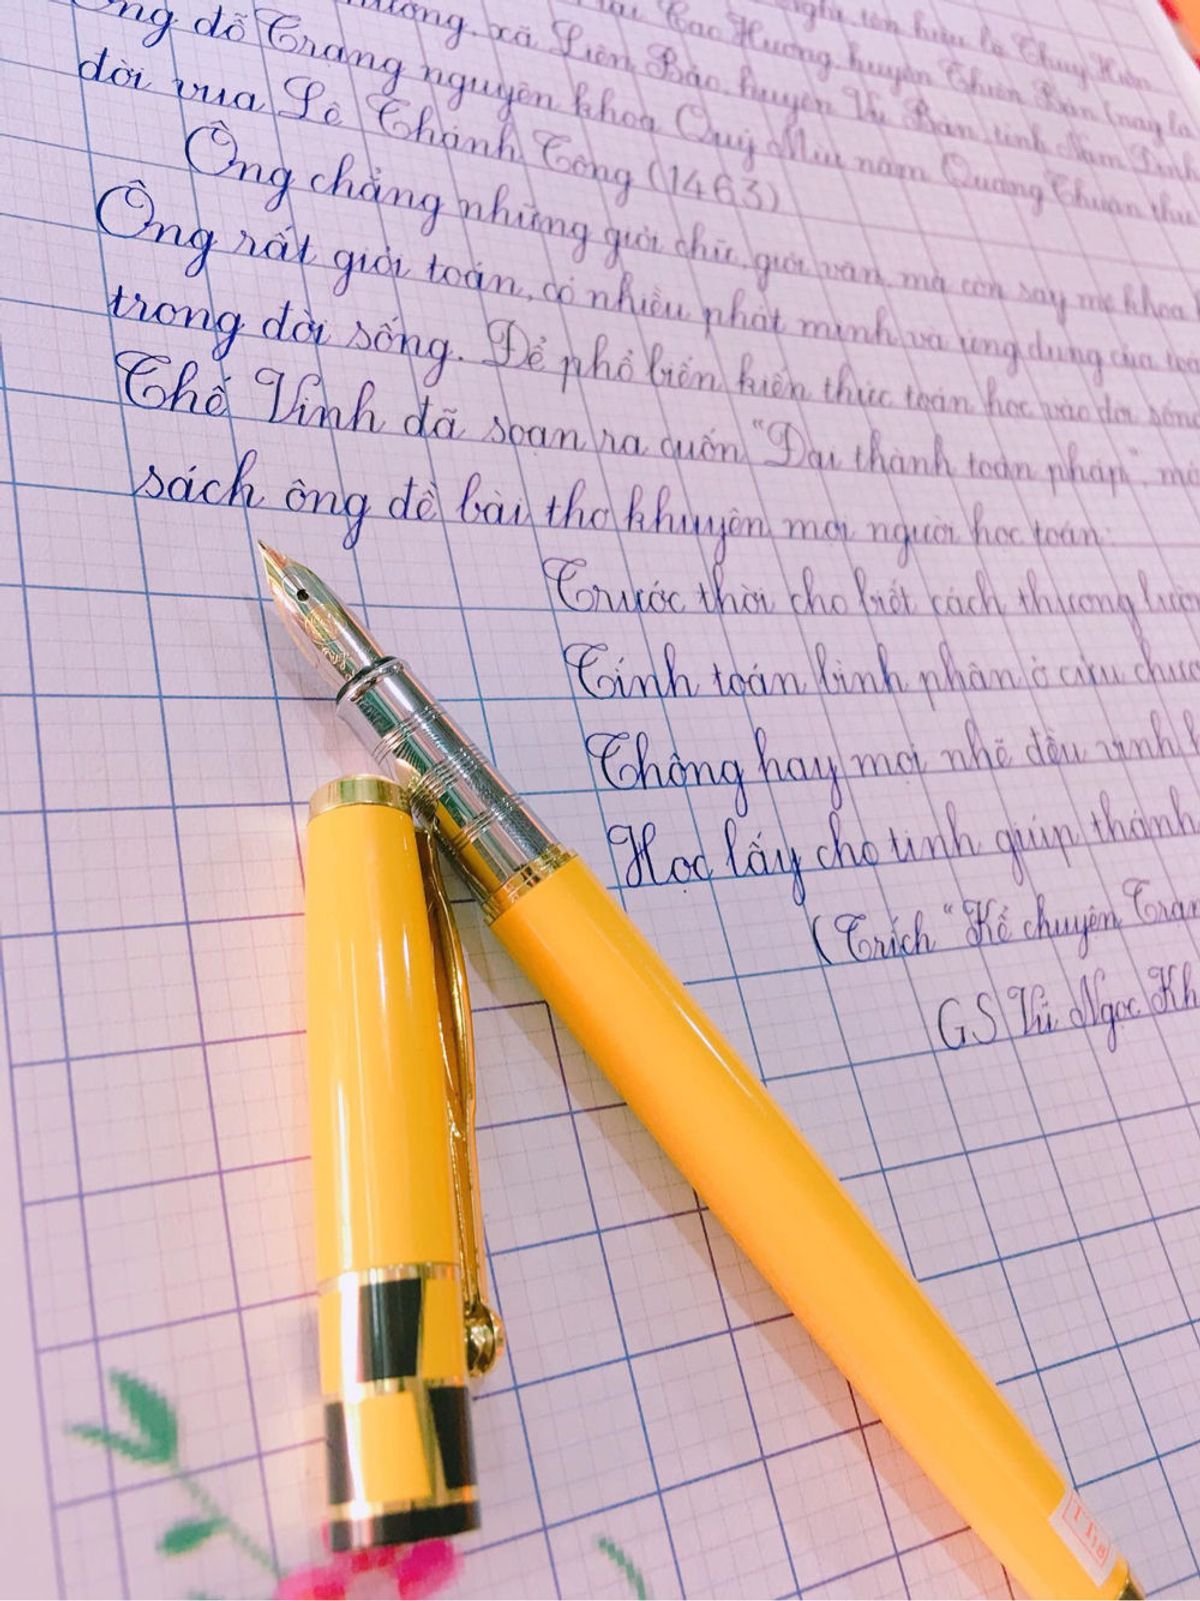 Cao Hương, huyện Thiên Bản (nay là
xã Liên Bảo, huyện Vụ Bản, tỉnh Nam Định
Ông đỗ Trạng nguyên khoa Quý Mùi năm Quang Thuận thứ
đời vua Lê Thánh Tông (1463)
Ông chẳng những giỏi chữ, giỏi văn, mà còn say mê khoa
Ông rất giỏi toán, có nhiều phát minh và ứng dụng của toán
trong đời sống. Để phổ biến kiến thức toán học vào đời sống
Thế Vinh đã soạn ra cuốn "Đại thành toán pháp",
sách ông đề bài thơ khuyên mọi người học toán:
Trước thời cho biết cách thương lường
Tính toán bình phân ở cửu chương
Thông hay mọi nhẽ đều vinh
Học lấy cho tinh giúp thánh
(Trích "Kể chuyện Trạn
GS Vũ Ngọc Kh